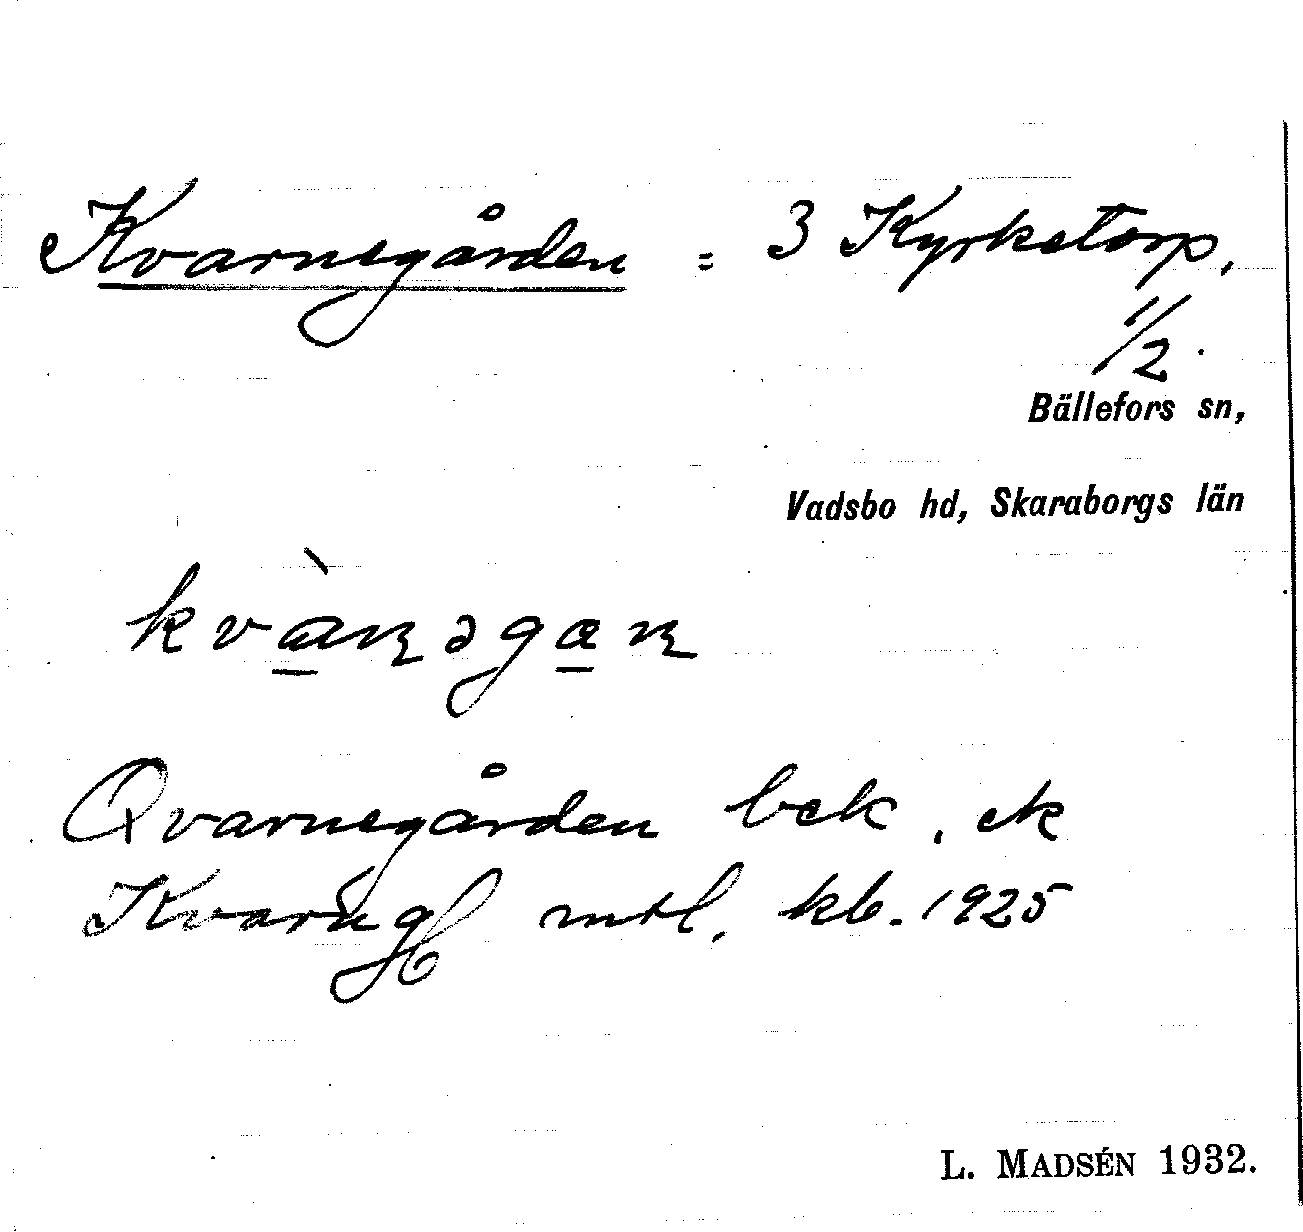 Kvarnegården = 3 Kyrketorp,
1/2.
Bällefors sn,
Vadsbo hd, Skaraborgs län
kvàɳəgaɳ
Qvarnegården bek, ek
Kvarng mtl, kb. 1925
L. MADSÉN 1932.